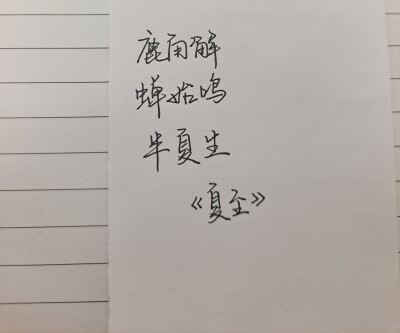 鹿角解
蝉始鸣
半夏生
《夏至》